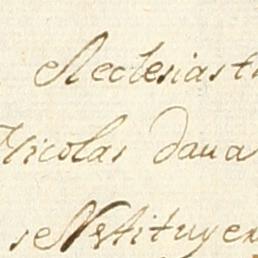 Aeclesiast
Nicolas daua
se Nstituyen